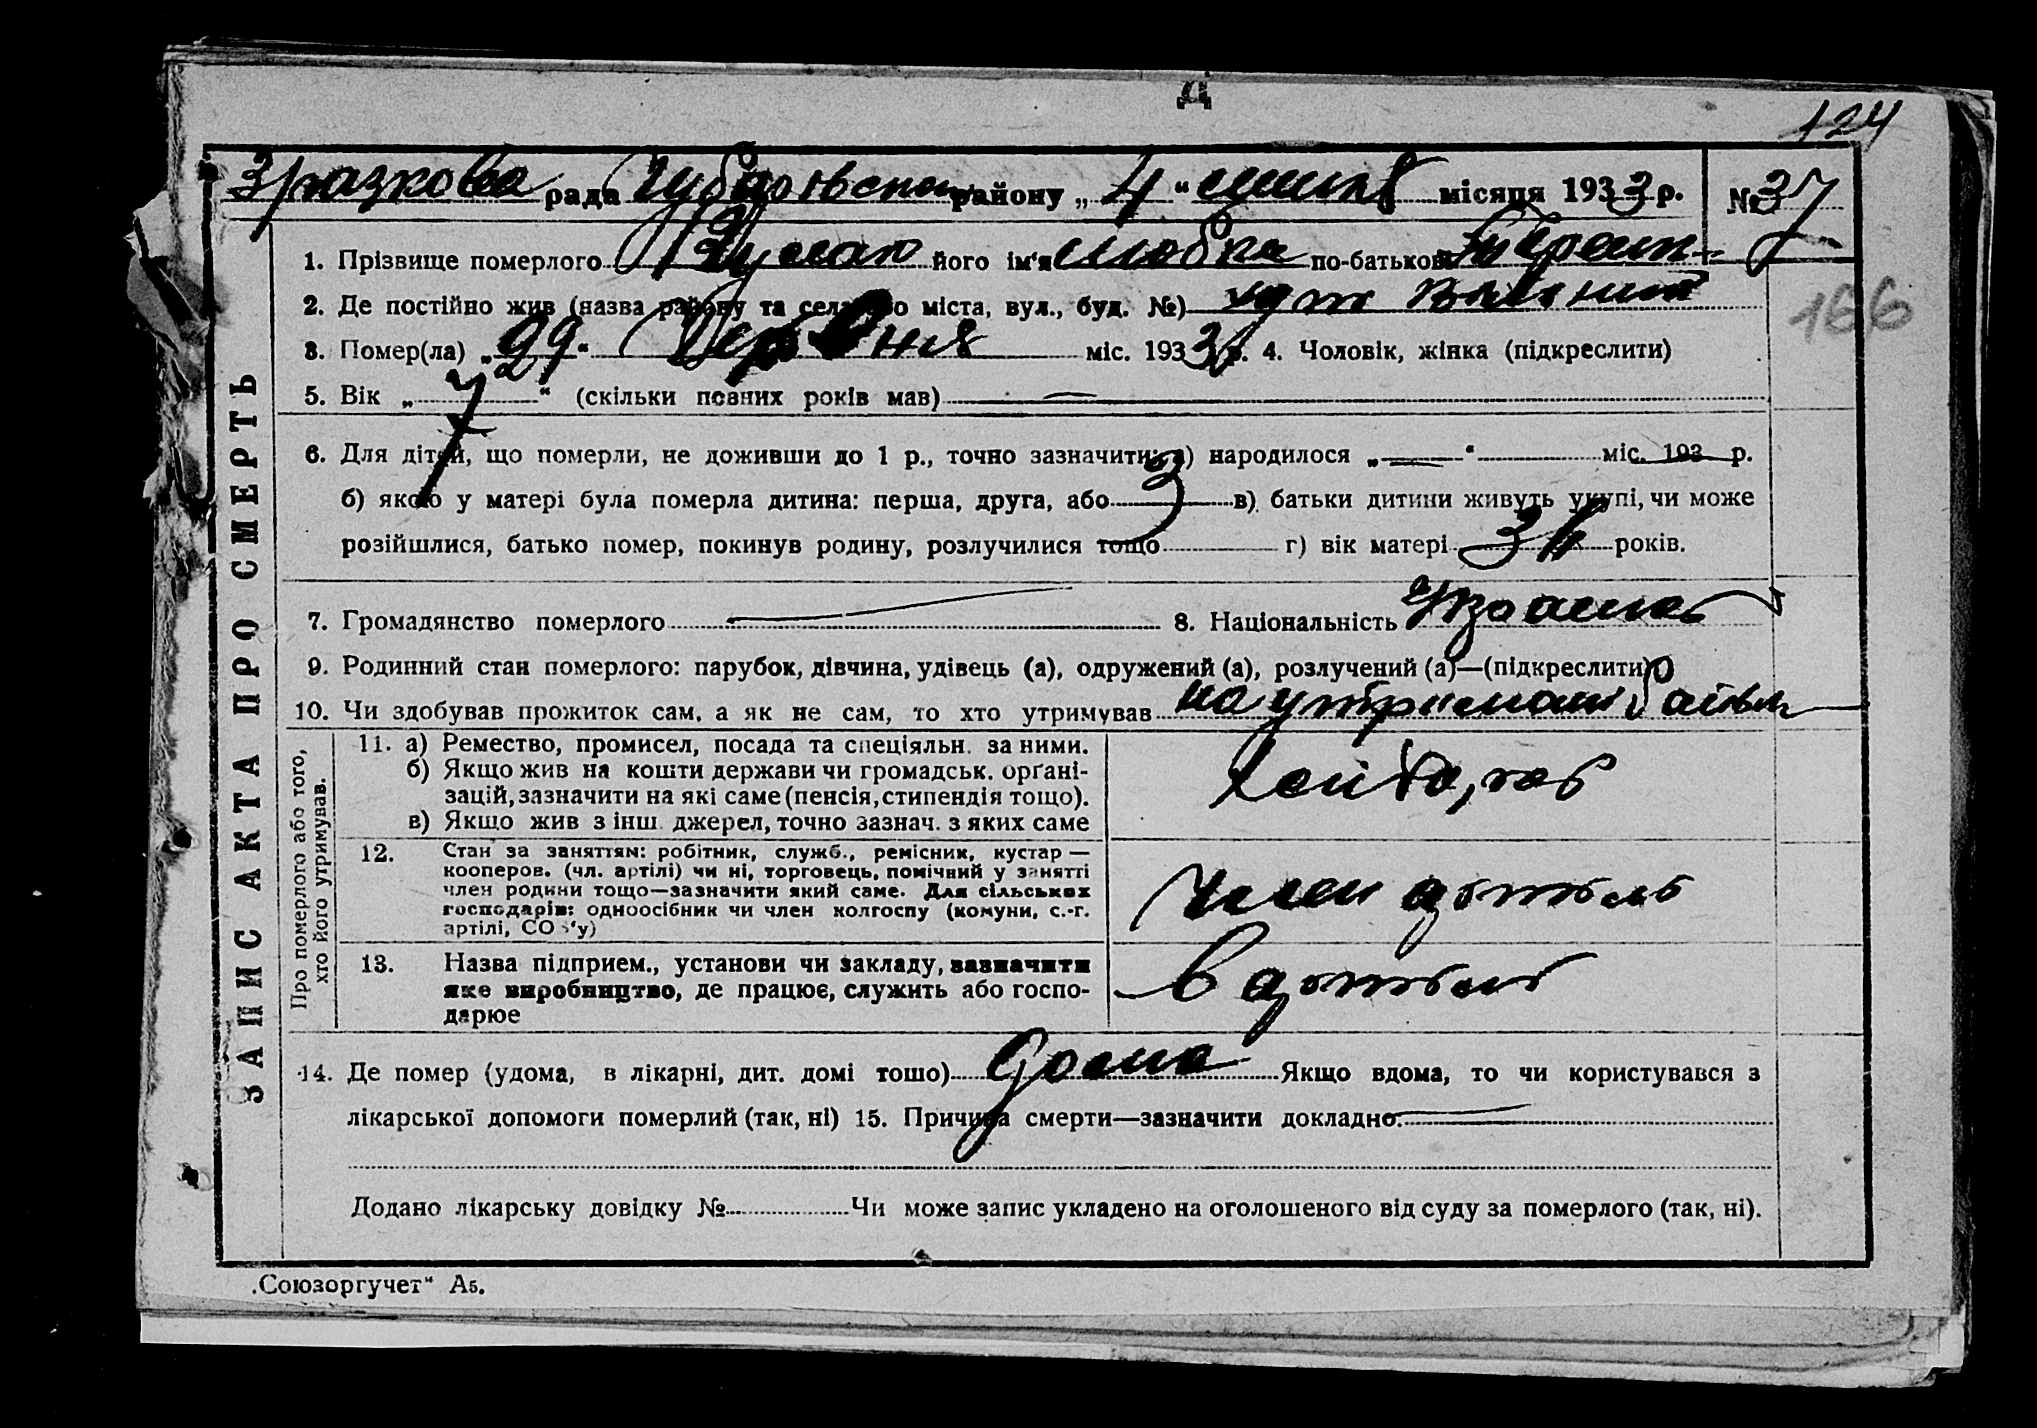 Д
124
Зразкова рада Чубарівського району „4“ липня місяця 1933 р. № 37
1. Прізвище померлого його ім'я по-батькові
166
2. Де постійно жив (назва району та села або міста, вул., буд. №)
3. Помер(ла) „29“ Червня міс. 1933 р. 4. Чоловік, жінка (підкреслити)
5. Вік „7“ (скільки повних років мав) —
6. Для дітей, що померли, не доживши до 1 р., точно зазначити: а) народилося „—“ міс. 193 р.
б) якою у матері була померла дитина: перша, друга, або 3 в) батьки дитини живуть укупі, чи може
розійшлися, батько помер, покинув родину, розлучилися тощо г) вік матері років.
7. Громадянство померлого — 8. Національність
9. Родинний стан померлого: парубок, дівчина, удівець (а), одружений (а), розлучений (а)—(підкреслити)
10. Чи здобував прожиток сам, а як не сам, то хто утримував на утриманні батька
ЗАПИС АКТА ПРО СМЕРТЬ
Про померлого або того, хто його утримував.
11. а) Ремество, промисел, посада та спеціяльн. за ними.
б) Якщо жив на кошти держави чи громадськ. орґані-
зацій, зазначити на які саме (пенсія, стипендія тощо).
в) Якщо жив з інш. джерел, точно зазнач. з яких саме
хлібороб
12. Стан за заняттям: робітник, служб., ремісник, кустар —
кооперов. (чл. артілі) чи ні, торговець, помічний у занятті
член родини тощо—зазначити який саме. Для сільських
господарів: одноосібник чи член колгоспу (комуни, с.-г.
артілі, СОЗ'у)
член артілі
13. Назва підприєм., установи чи закладу, зазначити
яке виробництво, де працює, служить або госпо-
дарює
в артілі
14. Де помер (удома, в лікарні, дит. домі тощо) дома Якщо вдома, то чи користувався з
лікарської допомоги померлий (так, ні) 15. Причина смерти—зазначити докладно: —
Додано лікарську довідку № Чи може запис укладено на оголошеного від суду за померлого (так, ні).
„Союзоргучет“ А5.